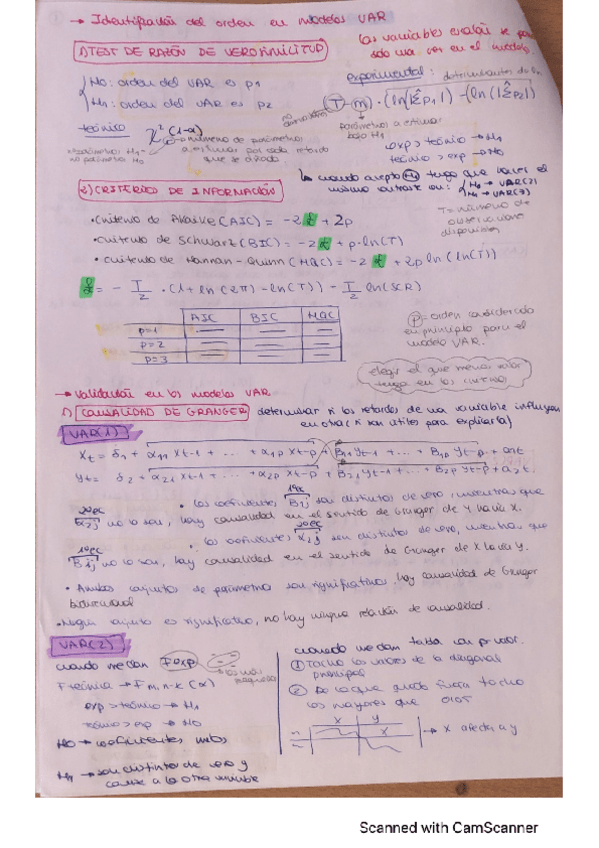 → Identificación del orden en modelos VAR
1) TEST DE RAZÓN DE VEROSIMILITUD
Las variables exógenas se po
solo una vez en el modelo.
H0: orden del VAR es p1
H1: orden del VAR es p2
experimental: determinantes de la
(T-m) · (ln(|Σ̂p1|) - (ln(|Σ̂p2|)
parámetros a estimar
bajo H1
teórico χ² (1-α)
→ número de parámetros
a estimar por cada retardo
que se añade
nº parámetros H1 -
nº parámetros H0
exp > teórico → H1
teórico > exp → H0
↳ cuando acepto H1 tengo que hacer el
mismo contraste con: H0 → VAR(2)
H1 → VAR(3)
2) CRITERIOS DE INFORMACIÓN
T = número de
observaciones
disponibles
• Criterio de Akaike (AIC) = -2ℓ + 2p
• criterio de Schwarz (BIC) = -2ℓ + p·ln(T)
• criterio de Hannan-Quinn (HQC) = -2ℓ + 2p ln(ln(T))
ℓ = - T/2 · (1 + ln(2π) - ln(T)) - T/2 ln(SCR)
AIC BIC HQC
p=1
p=2
p=3
p = orden considerado
en principio para el
modelo VAR.
elegir el que menos valor
tenga en los criterios
→ Validación en los modelos VAR
1) CAUSALIDAD DE GRANGER determinar si los retardos de una variable influyen
en otra (si son útiles para explicarla)
VAR(1)
Xt = δ1 + α11 Xt-1 + ... + α1p Xt-p + B11 Yt-1 + ... + B1p Yt-p + a1t
Yt = δ2 + α21 Xt-1 + ... + α2p Xt-p + B21 Yt-1 + ... + B2p Yt-p + a2t
1ªec
• los coeficientes B1j son distintos de cero, mientras que
2ªec
B2j no lo son, hay causalidad en el sentido de Granger de Y hacia X.
2ªec
• los coeficientes α2j son distintos de cero, mientras que
1ªec
B1j no lo son, hay causalidad en el sentido de Granger de X hacia Y.
• Ambos conjuntos de parámetros son significativos, hay causalidad de Granger
bidireccional
• Ningún conjunto es significativo, no hay ninguna relación de causalidad.
VAR(2)
cuando me dan Fexp
F teórica → F m, n-k (α)
exp > teórico → H1
teórico > exp → H0
H0 → coeficientes nulos
H1 → son distintos de cero y
causa a la otra variable
cuando me dan tabla con p valor.
① Tacho los valores de la diagonal
principal
② De lo que queda fuera tacho
los mayores que 0'05
X Y
X
→ X afecta a y
Scanned with CamScanner